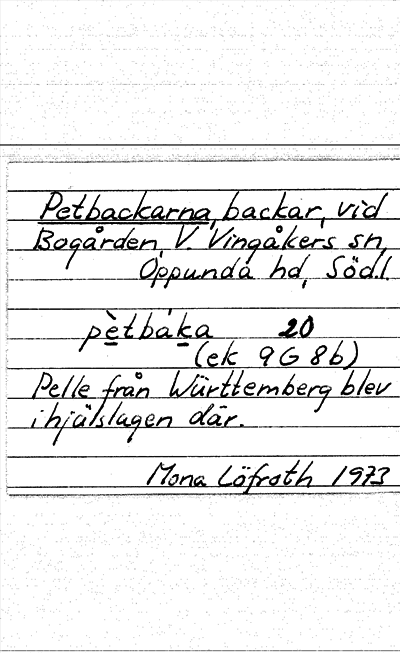 Petbackarna, backar, vid
Bogården, V. Vingåkers sn,
Oppunda hd, Södl.
pètbáka 20
(ek 9G 8b)
Pelle från Württemberg blev
ihjälslagen där.
Mona Löfroth 1973